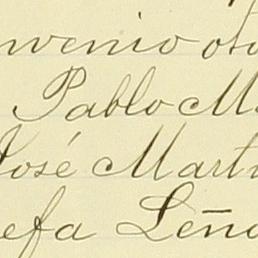 nvenio oto
Pablo M
José Marti
efa Leño